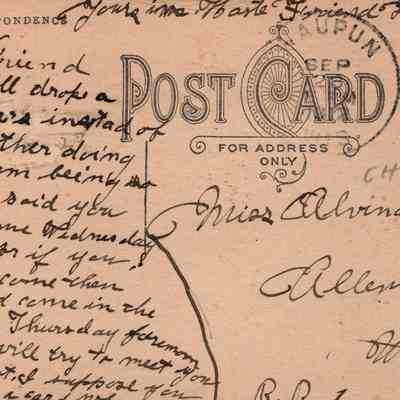 Yours in Haste Friend
PONDENCE
AUPUN
SEP
POST CARD
FOR ADDRESS
ONLY
CH
Friend
ll drop a
instead of
ther doing
m being
said you
me Wednesday
or if you
come then
d come in the
Thursday forenoon
will try to meet you
I suppose you
Miss Alvina
Allen
R.R. 1